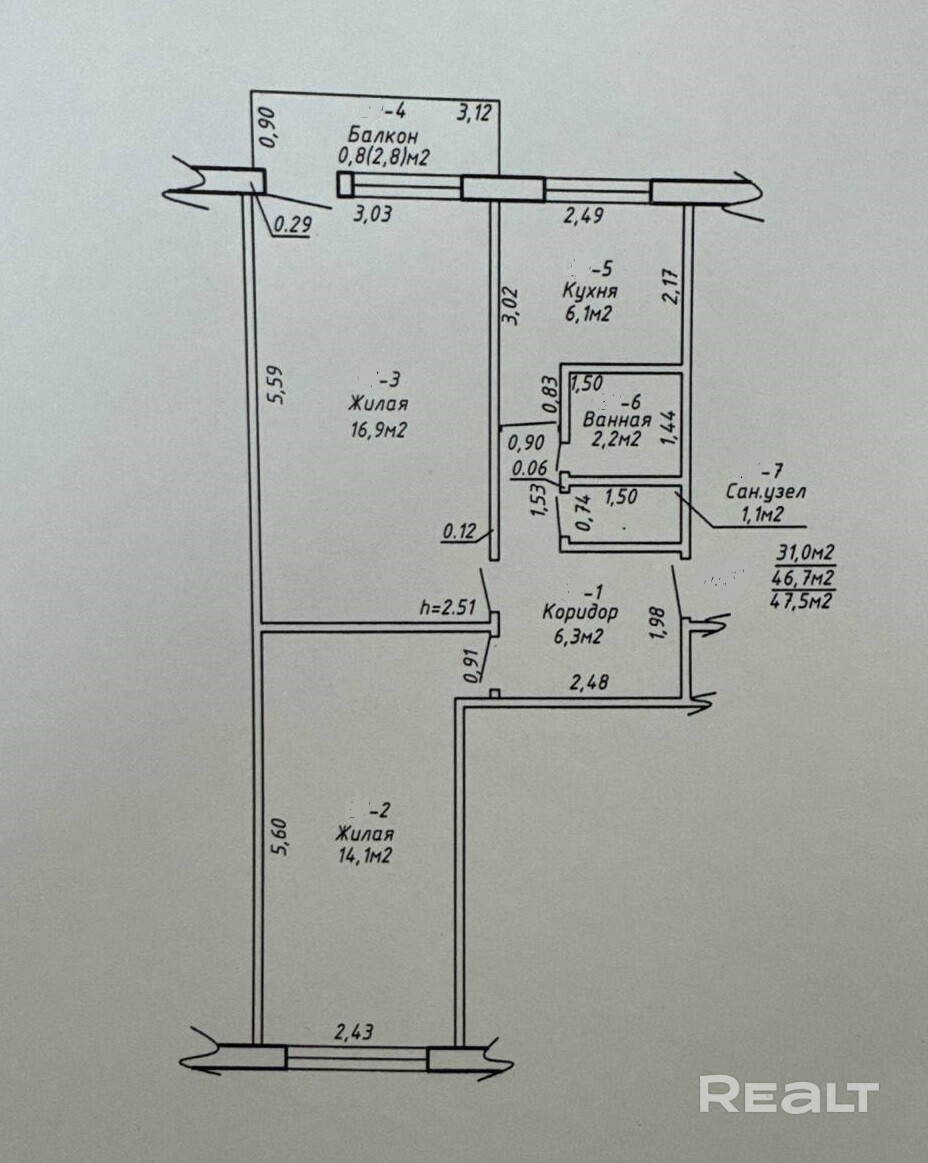 -4
3,12
0,90
Балкон
0,8(2,8)м2
3,03
2,49
0.29
-5
Кухня
6,1м2
2,17
3,02
5,59
-3
Жилая
16,9м2
0,83
1,50
-6
Ванная
2,2м2
1,44
0,90
0.06
1,53
0,74
1,50
-7
Сан.узел
1,1м2
0.12
31,0м2
46,7м2
47,5м2
h=2.51
-1
Коридор
6,3м2
1,98
0,91
2,48
-2
Жилая
14,1м2
5,60
2,43
REALT